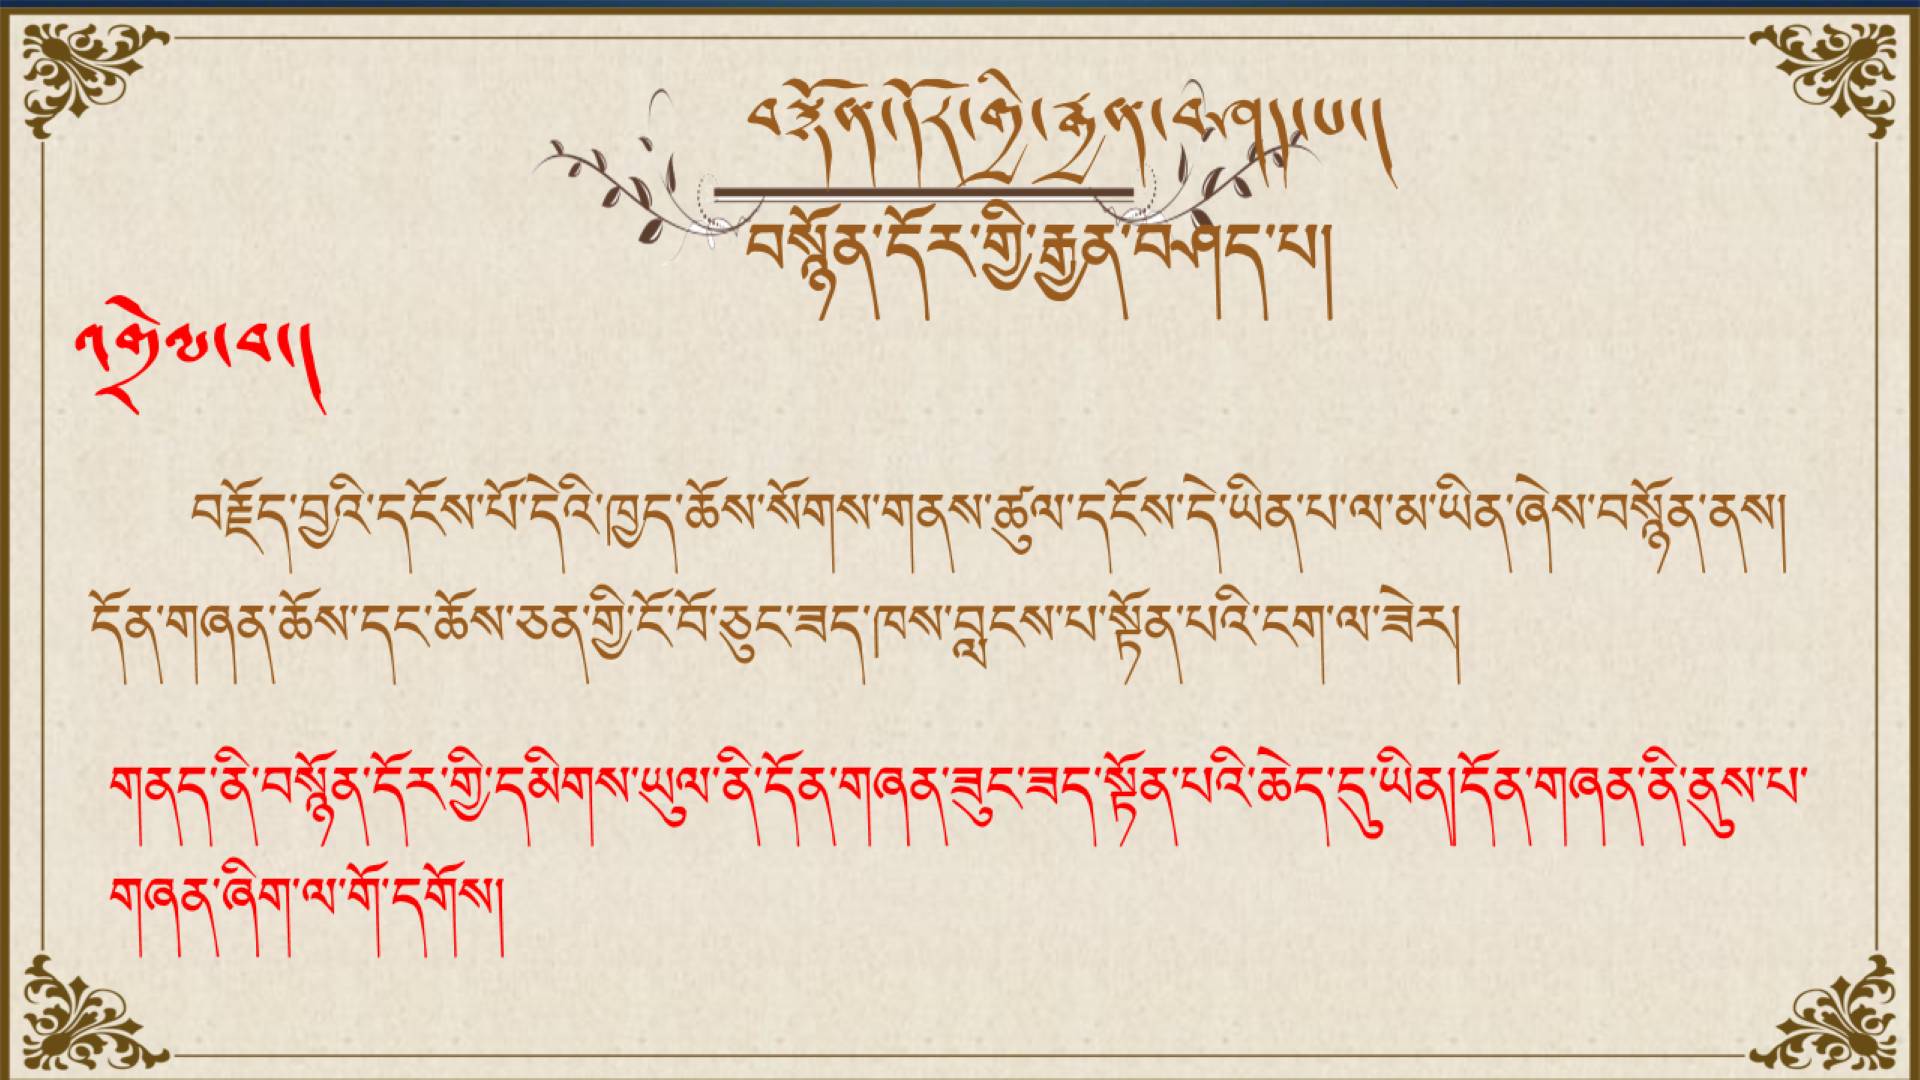 བསྙོན་དོར་གྱི་རྒྱན་བཤད་པ།
བསྙོན་དོར་གྱི་རྒྱན་བཤད་པ།
འགྲེལ་བ།
བརྗོད་བྱའི་དངོས་པོ་དེའི་ཁྱད་ཆོས་སོགས་གནས་ཚུལ་དངོས་དེ་ཡིན་པ་ལ་མ་ཡིན་ཞེས་བསྙོན་ནས།
དོན་གཞན་ཆོས་དང་ཆོས་ཅན་གྱི་ངོ་བོ་ཅུང་ཟད་ཁས་བླངས་པ་སྟོན་པའི་ངག་ལ་ཟེར།
གནད་ནི་བསྙོན་དོར་གྱི་དམིགས་ཡུལ་ནི་དོན་གཞན་ཟུང་ཟད་སྟོན་པའི་ཆེད་དུ་ཡིན།དོན་གཞན་ནི་ནུས་པ་
གཞན་ཞིག་ལ་གོ་དགོས།